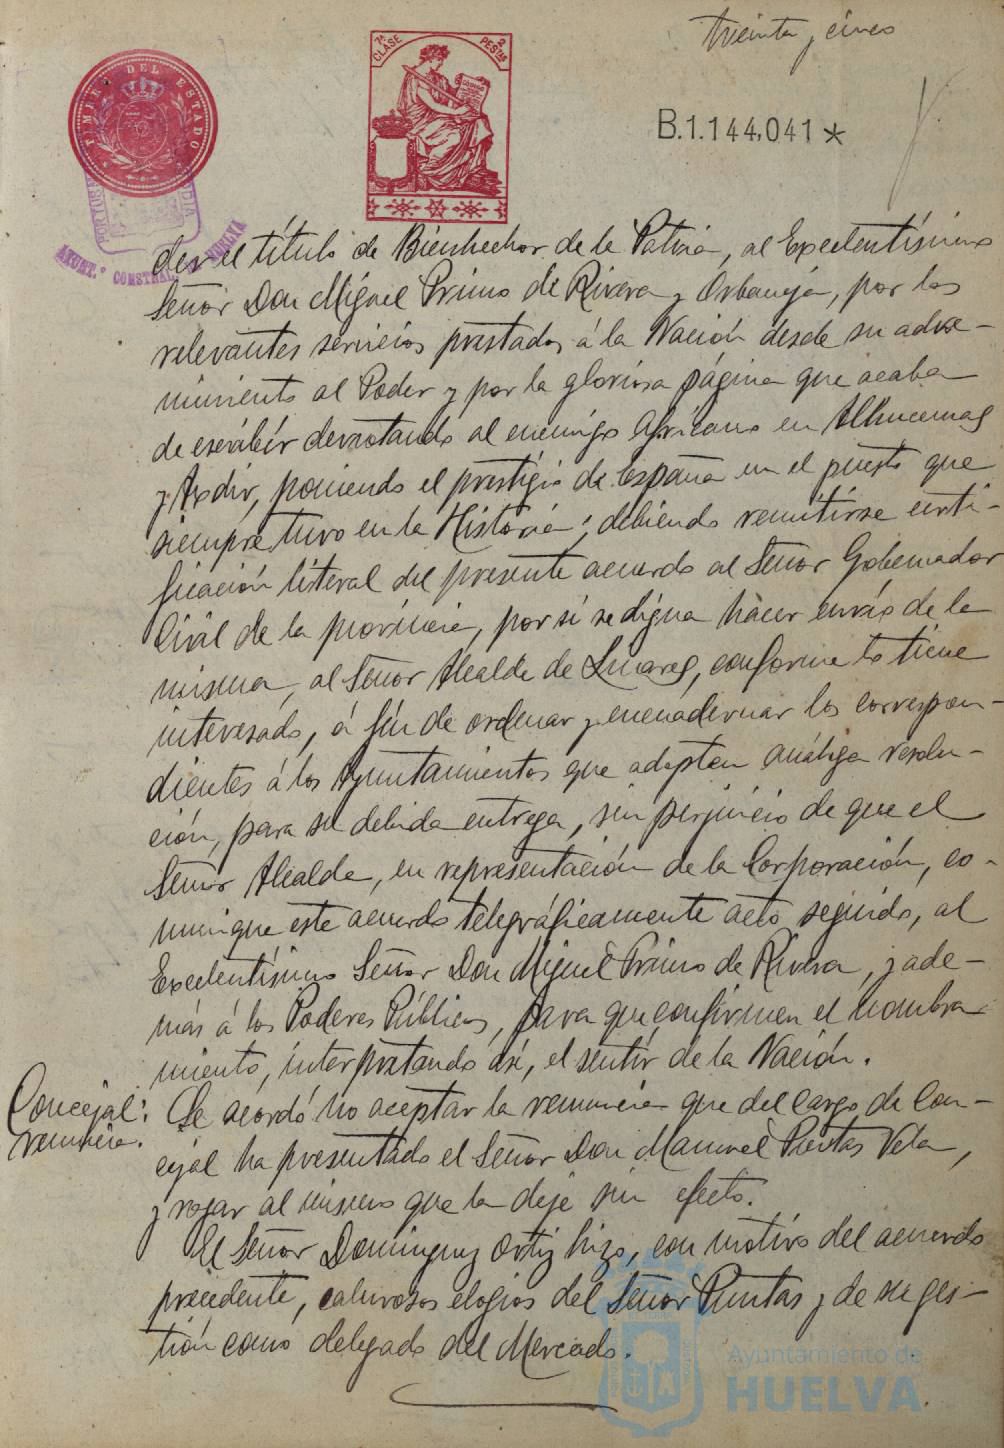 treinta y cinco
TIMBRE DEL ESTADO
7ª CLASE
2 PESTAS
B.1.144,041*
AYUNT.º CONSTNAL. HUELVA
der el título de Bienhechor de la Patria, al Excelentísimo
Señor Don Miguel Primo de Rivera y Orbaneja, por los
relevantes servicios prestados á la Nación desde su adve-
nimiento al Poder y por la gloriosa página que acaba
de escribir derrotando al enemigo africano en Alhucemas
y Axdir, poniendo el prestigio de España en el puesto que
siempre tuvo en la Historia; debiendo remitirse certi-
ficación literal del presente acuerdo al Señor Gobernador
Civil de la provincia, por si se digna hacer envío de la
misma, al Señor Alcalde de Linares, conforme lo tiene
interesado, á fín de ordenar y encuadernar los correspon-
dientes á los Ayuntamientos que adopten análoga resolu-
ción, para su debida entrega, sin perjuicio de que el
Señor Alcalde, en representación de la Corporación, co-
munique este acuerdo telegráficamente acto seguido, al
Excelentísimo Señor Don Miguel Primo de Rivera, y ade-
más á los Poderes Públicos, para que confirmen el nombra
miento, interpretando así, el sentir de la Nación.
Concejal: Se acordó no aceptar la renuncia que del cargo de Con-
renuncia. cejal ha presentado el Señor Don Manuel Puntas Vela,
y rogar al mismo que la deje sin efecto.
El Señor Dominguez Ortiz hizo, con motivo del acuerdo
precedente, calurosos elogios del Señor Puntas y de su ges-
tión como delegado del Mercado.
Ayuntamiento de
HUELVA